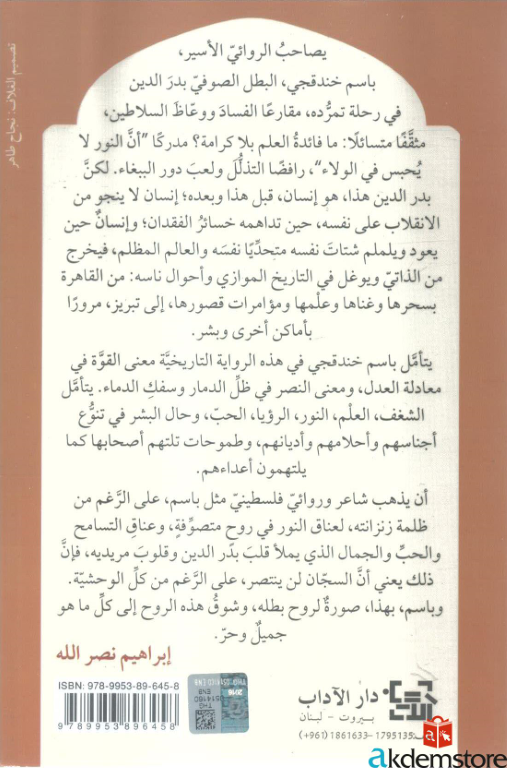 يصاحبُ الروائيّ الأسير،
باسم خندقجي، البطل الصوفيّ بدرَ الدين
في رحلة تمرُّده، مقارعًا الفسادَ ووعّاظَ السلاطين،
مثقَّفًا متسائلًا: ما فائدةُ العلم بلا كرامة؟ مدركًا "أنَّ النور لا
يُحبس في الولاء"، رافضًا التذلُّلَ ولعبَ دور الببغاء. لكنَّ
بدر الدين هذا، هو إنسان، قبل هذا وبعده؛ إنسان لا ينجو من
الانقلاب على نفسه، حين تداهمه خسائرُ الفقدان؛ وإنسانٌ حين
يعود ويلملم شتاتَ نفسه متحدّيًا نفسَه والعالم المظلم، فيخرج
من الذاتيّ ويوغل في التاريخ الموازي وأحوال ناسه: من القاهرة
بسحرها وغناها وعلْمها ومؤامرات قصورها، إلى تبريز، مرورًا
بأماكن أخرى وبشر.
يتأمَّل باسم خندقجي في هذه الرواية التاريخيَّة معنى القوَّة في
معادلة العدل، ومعنى النصر في ظلِّ الدمار وسفكِ الدماء. يتأمَّل
الشغف، العلْم، النور، الرؤيا، الحبّ، وحال البشر في تنوُّع
أجناسهم وأحلامهم وأديانهم، وطموحات تلتهم أصحابها كما
يلتهمون أعداءهم.
أن يذهب شاعر وروائيّ فلسطينيّ مثل باسم، على الرَّغم من
ظلمة زنزانته، لعناق النور في روحٍ متصوِّفةٍ، وعناقِ التسامح
والحبِّ والجمال الذي يملأ قلبَ بدْر الدين وقلوبَ مريديه، فإنَّ
ذلك يعني أنَّ السجّان لن ينتصر، على الرَّغم من كلِّ الوحشيَّة.
وباسم، بهذا، صورةٌ لروح بطله، وشوقُ هذه الروح إلى كلِّ ما هو
جميلٌ وحرّ.
إبراهيم نصر الله
تصميم الغلاف: نجاح طاهر
ISBN: 978-9953-89-645-8
9 789953 896458
2016
دار الآداب
بيروت - لبنان
(+961) 1861633- 1795135
akdemstore